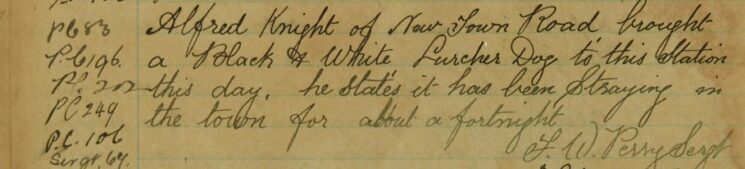 PC 83 Alfred Knight of New Town Road, brought
P.C. 196. a Black & White Lurcher Dog to this Station
P.C. 202 this day. he States it has been Straying in
PC 249 the town for about a fortnight
P.C. 106 F. W. Perry Sergt
Sergt. 67.